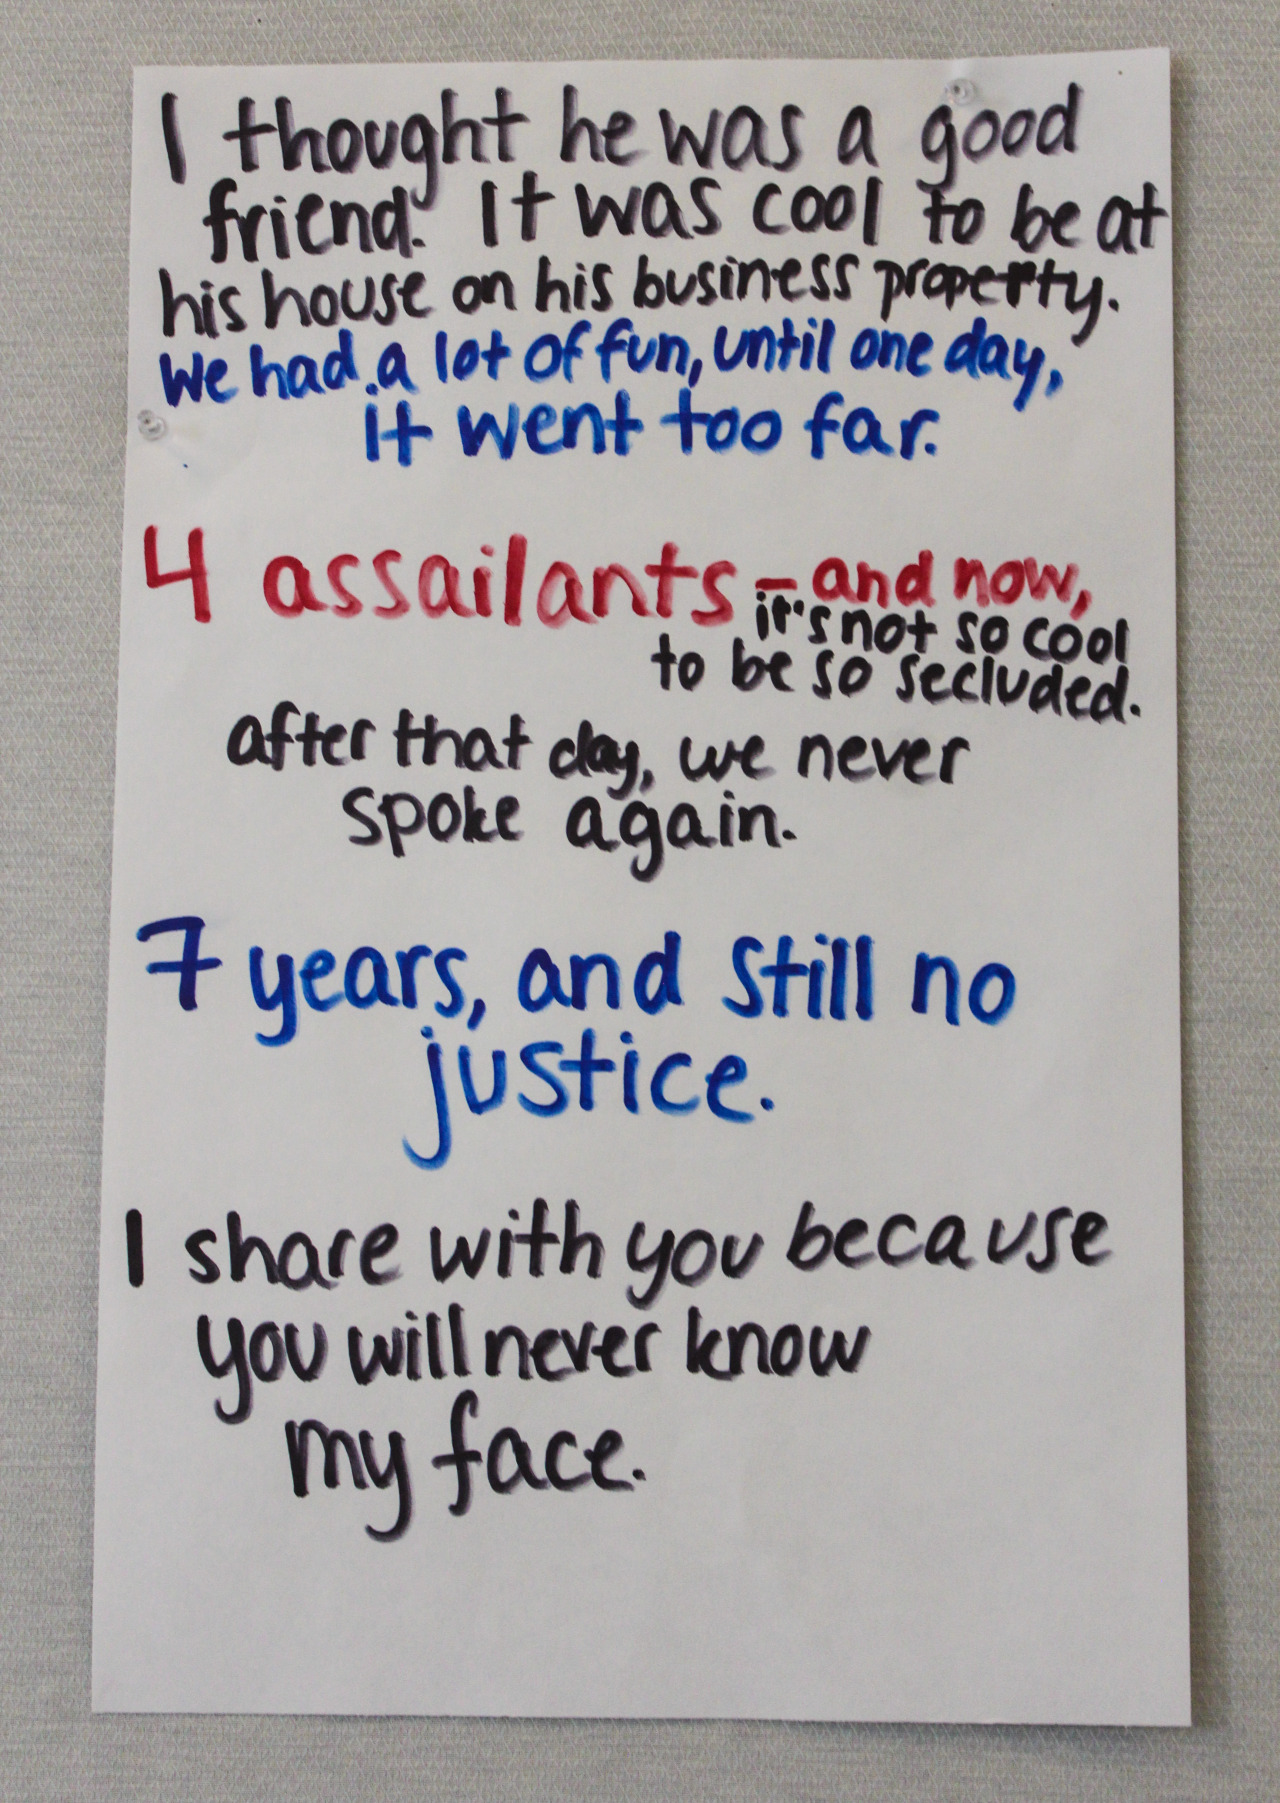 I thought he was a good
friend. It was cool to be at
his house on his business property.
We had a lot of fun, until one day,
it went too far.
4 assailants - and now,
it's not so cool
to be so secluded.
after that day, we never
spoke again.
7 years, and still no
justice.
I share with you because
you will never know
my face.